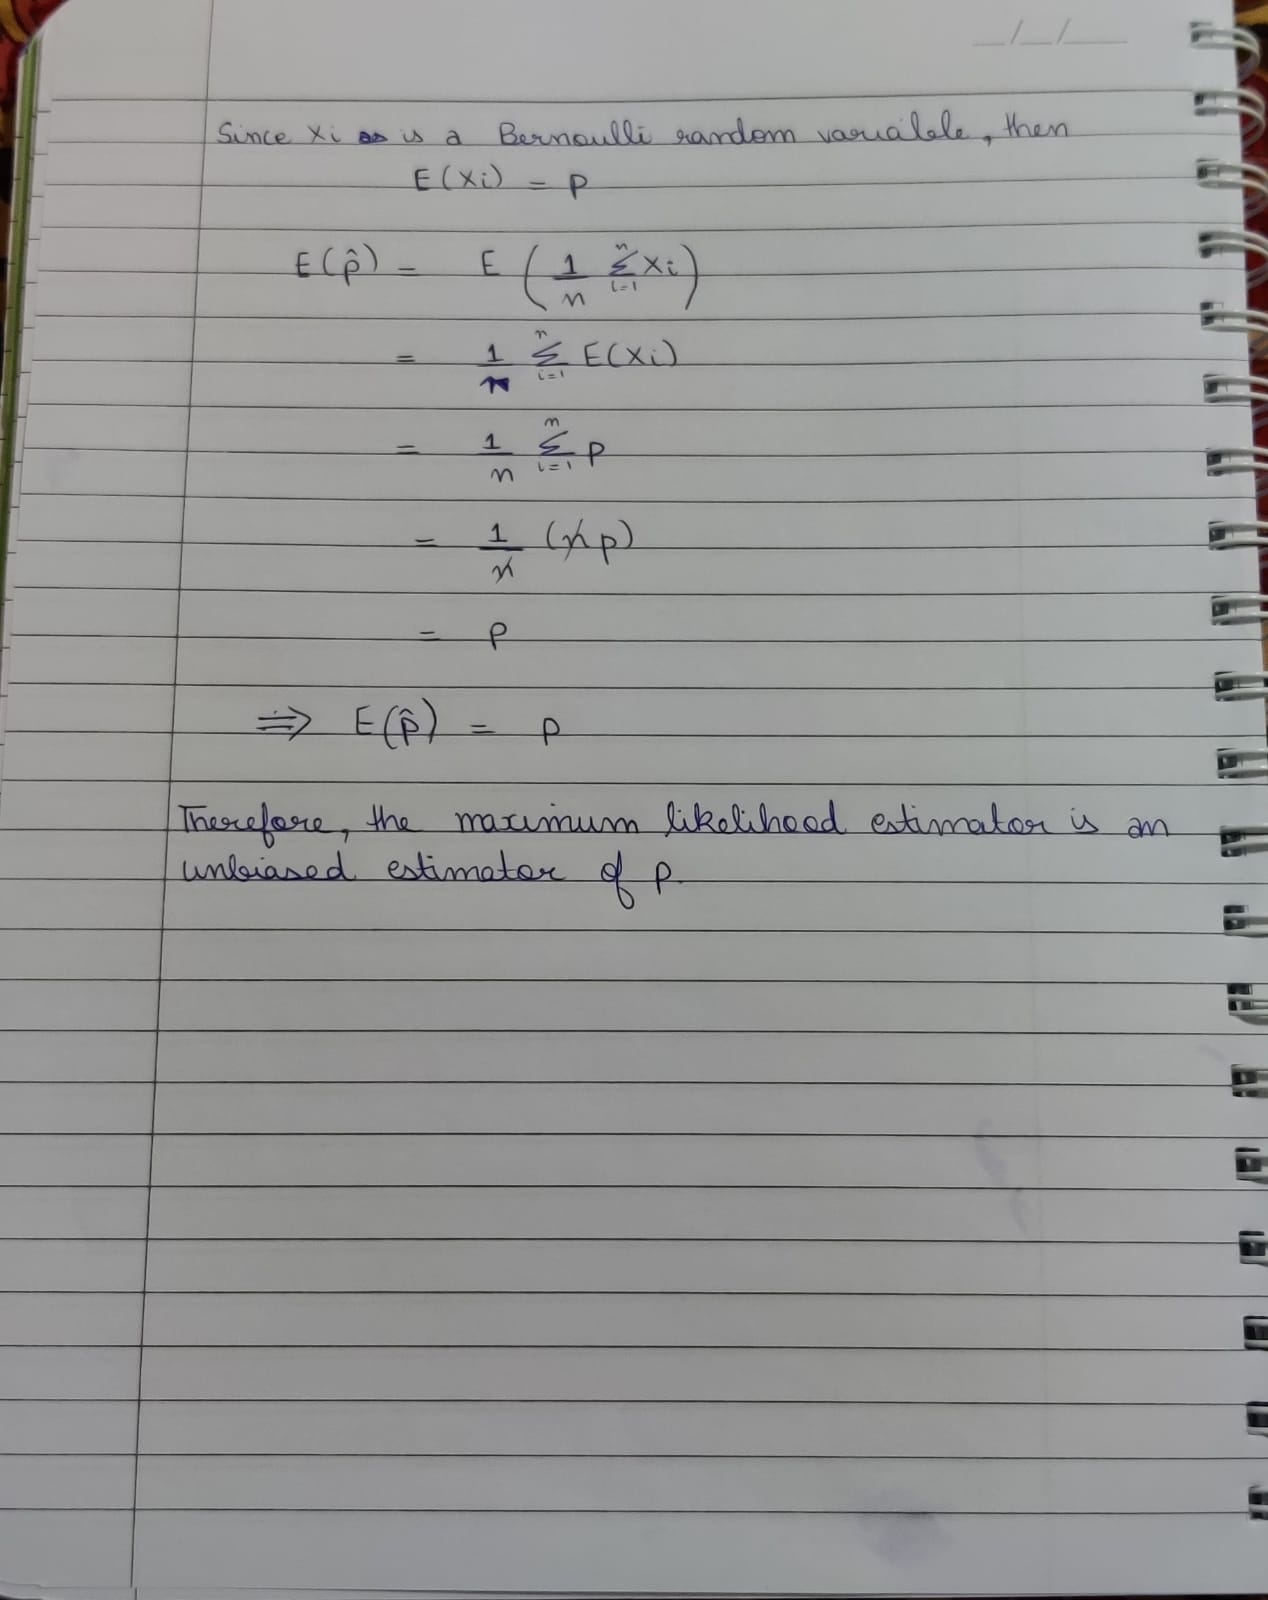 __/__/__
Since Xi is a Bernoulli random variable, then
E(Xi) = p
E(p̂) = E ( 1/n Σ_{i=1}^{n} Xi )
= 1/n Σ_{i=1}^{n} E(Xi)
= 1/n Σ_{i=1}^{n} p
= 1/n (n p)
= p
⇒ E(p̂) = p
Therefore, the maximum likelihood estimator is an
unbiased estimator of p.